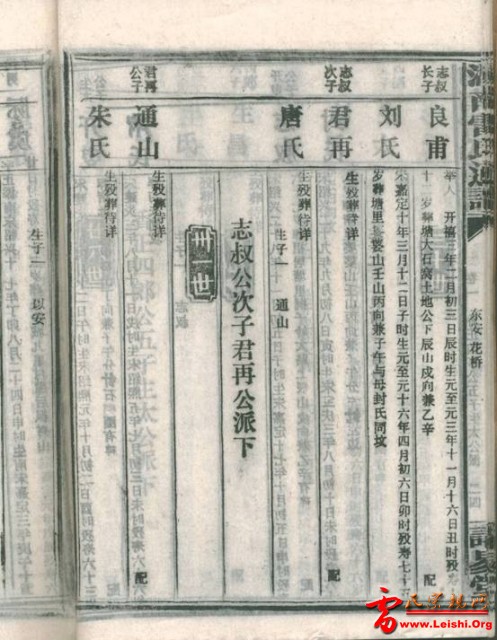 志叔长子
良甫
举人 开禧三年二月初三日辰时生元至元三年十一月十六日丑时殁
十一岁葬塘大石窝土地公下辰山戌向兼乙辛 配
刘氏
宋嘉定十年三月十二日子时生元至元十六年四月初六日卯时殁寿七十
岁葬塘里婆山壬山丙向兼子午与母封氏同坟
志叔次子
君再
生殁葬待详 配
唐氏
生殁葬待详 生子一 通山
志叔公次子君再公派下
卅一世
君再公子
通山
生殁葬待详 配
朱氏
生殁葬待详
生子一 以安
东安花桥
雷氏宗亲网
www.Leishi.Org